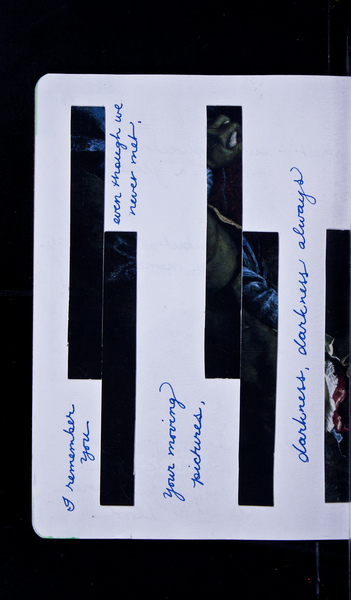 I remember
you
even though we
never met,
Your moving
pictures,
darkness, darkness always